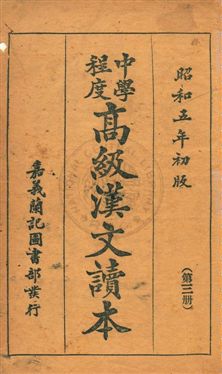 昭和五年初版
(第三册)
中學程度
高級漢文讀本
嘉義蘭記圖書部發行